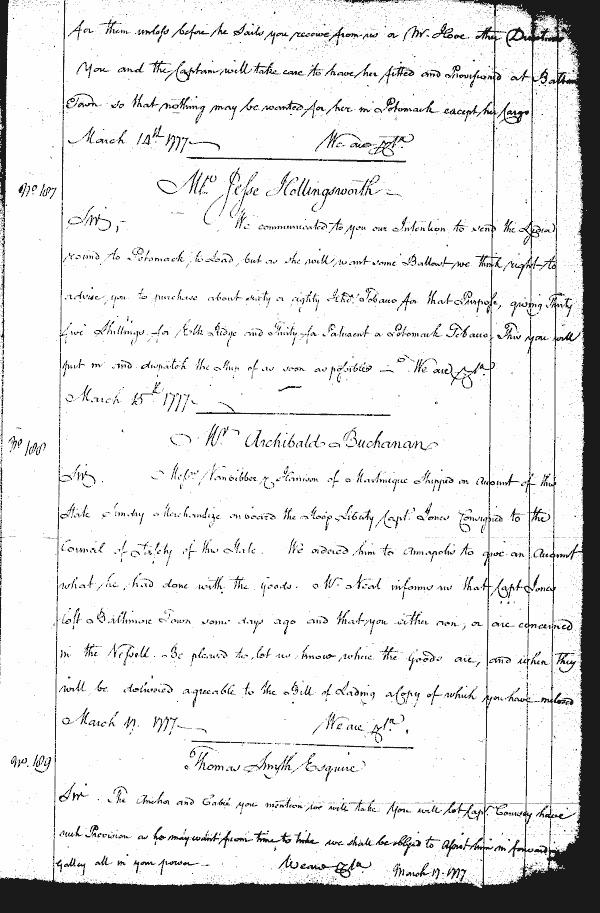 for them unless before he Sails you receive from us or Mr. Hove other Directions
You and the Captain will take care to have her fitted and Provisioned at Baltim
Town so that nothing may be wanted for her in Potomack except her Cargo
March 14th 1777 — We are &ca.
No 187
Mr. Jesse Hollingsworth —
Sir, We communicated to you our Intention to send the Lydia
round to Potomack to Load, but as she will want some Ballast we think right to
advise you to purchase about sixty or eighty Hhds. Tobacco for that Purpose, giving Thirty
five Shillings for Elk Ridge and Thirty for Patuxent or Potomack Tobacco, This you will
put in and dispatch the Ship of as soon as possible — We are &ca
March 15th 1777 —
No 188
Mr. Archibald Buchanan
Sir. Messrs. Vanbibber & Harrison of Martinique Shipped on Account of this
State Sundry Merchandize onboard the Sloop Liberty Capt. Jones Consigned to the
Council of Safety of this State. We ordered him to Annapolis to give an Account
what he had done with the Goods. Mr. Neal informs us that Capt Jones
left Baltimore Town some days ago and that you either own, or are concerned
in the Vessell. Be pleased to let us know where the Goods are, and when they
will be delivered agreeable to the Bill of Lading a Copy of which you have inclosed
March 17. 1777 — We are &ca.
No. 189
Thomas Smyth Esquire
Sir. The Anchor and Cable you mention we will take You will let Capt. Coursey have
such Provision as he may want from time to time we shall be obliged to Assist him in forward
Galley all in your power — We are &ca March 17. 1777